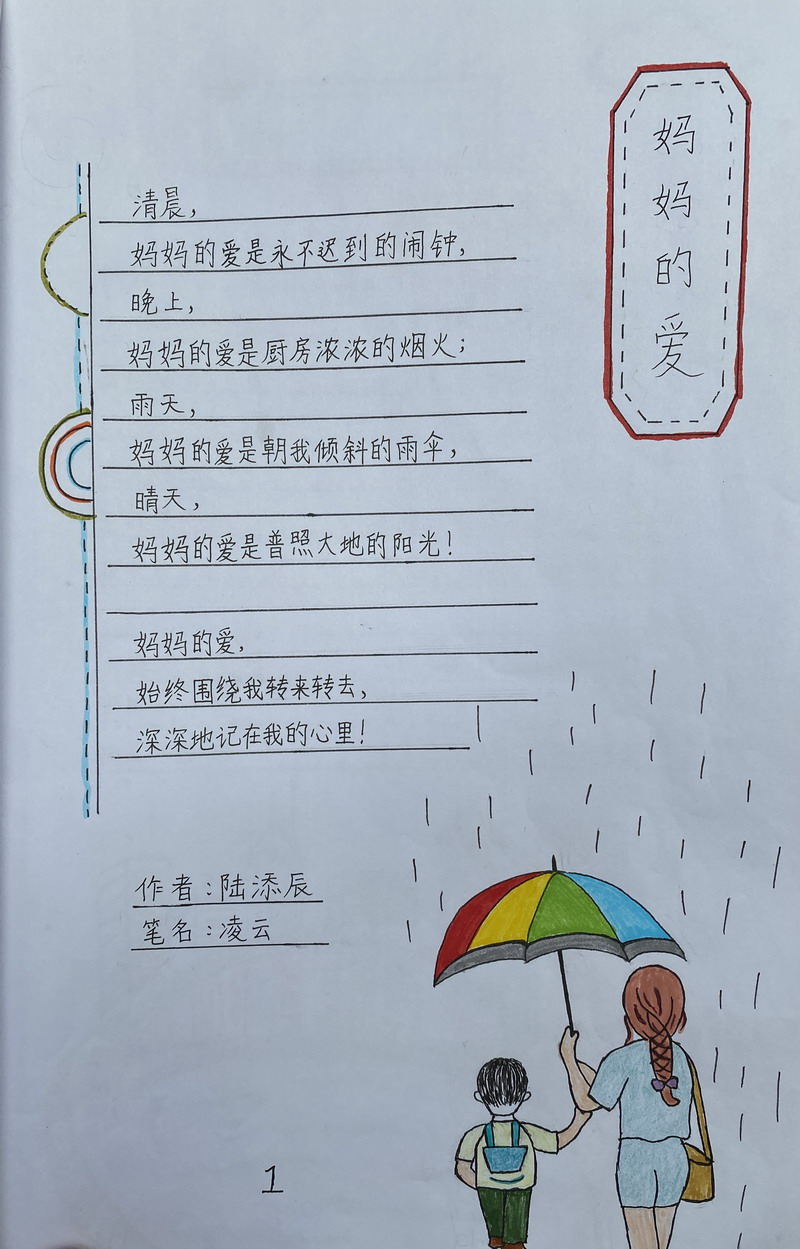 妈妈的爱
清晨，
妈妈的爱是永不迟到的闹钟，
晚上，
妈妈的爱是厨房浓浓的烟火；
雨天，
妈妈的爱是朝我倾斜的雨伞，
晴天，
妈妈的爱是普照大地的阳光！
妈妈的爱，
始终围绕我转来转去，
深深地记在我的心里！
作者：陆添辰
笔名：凌云
1